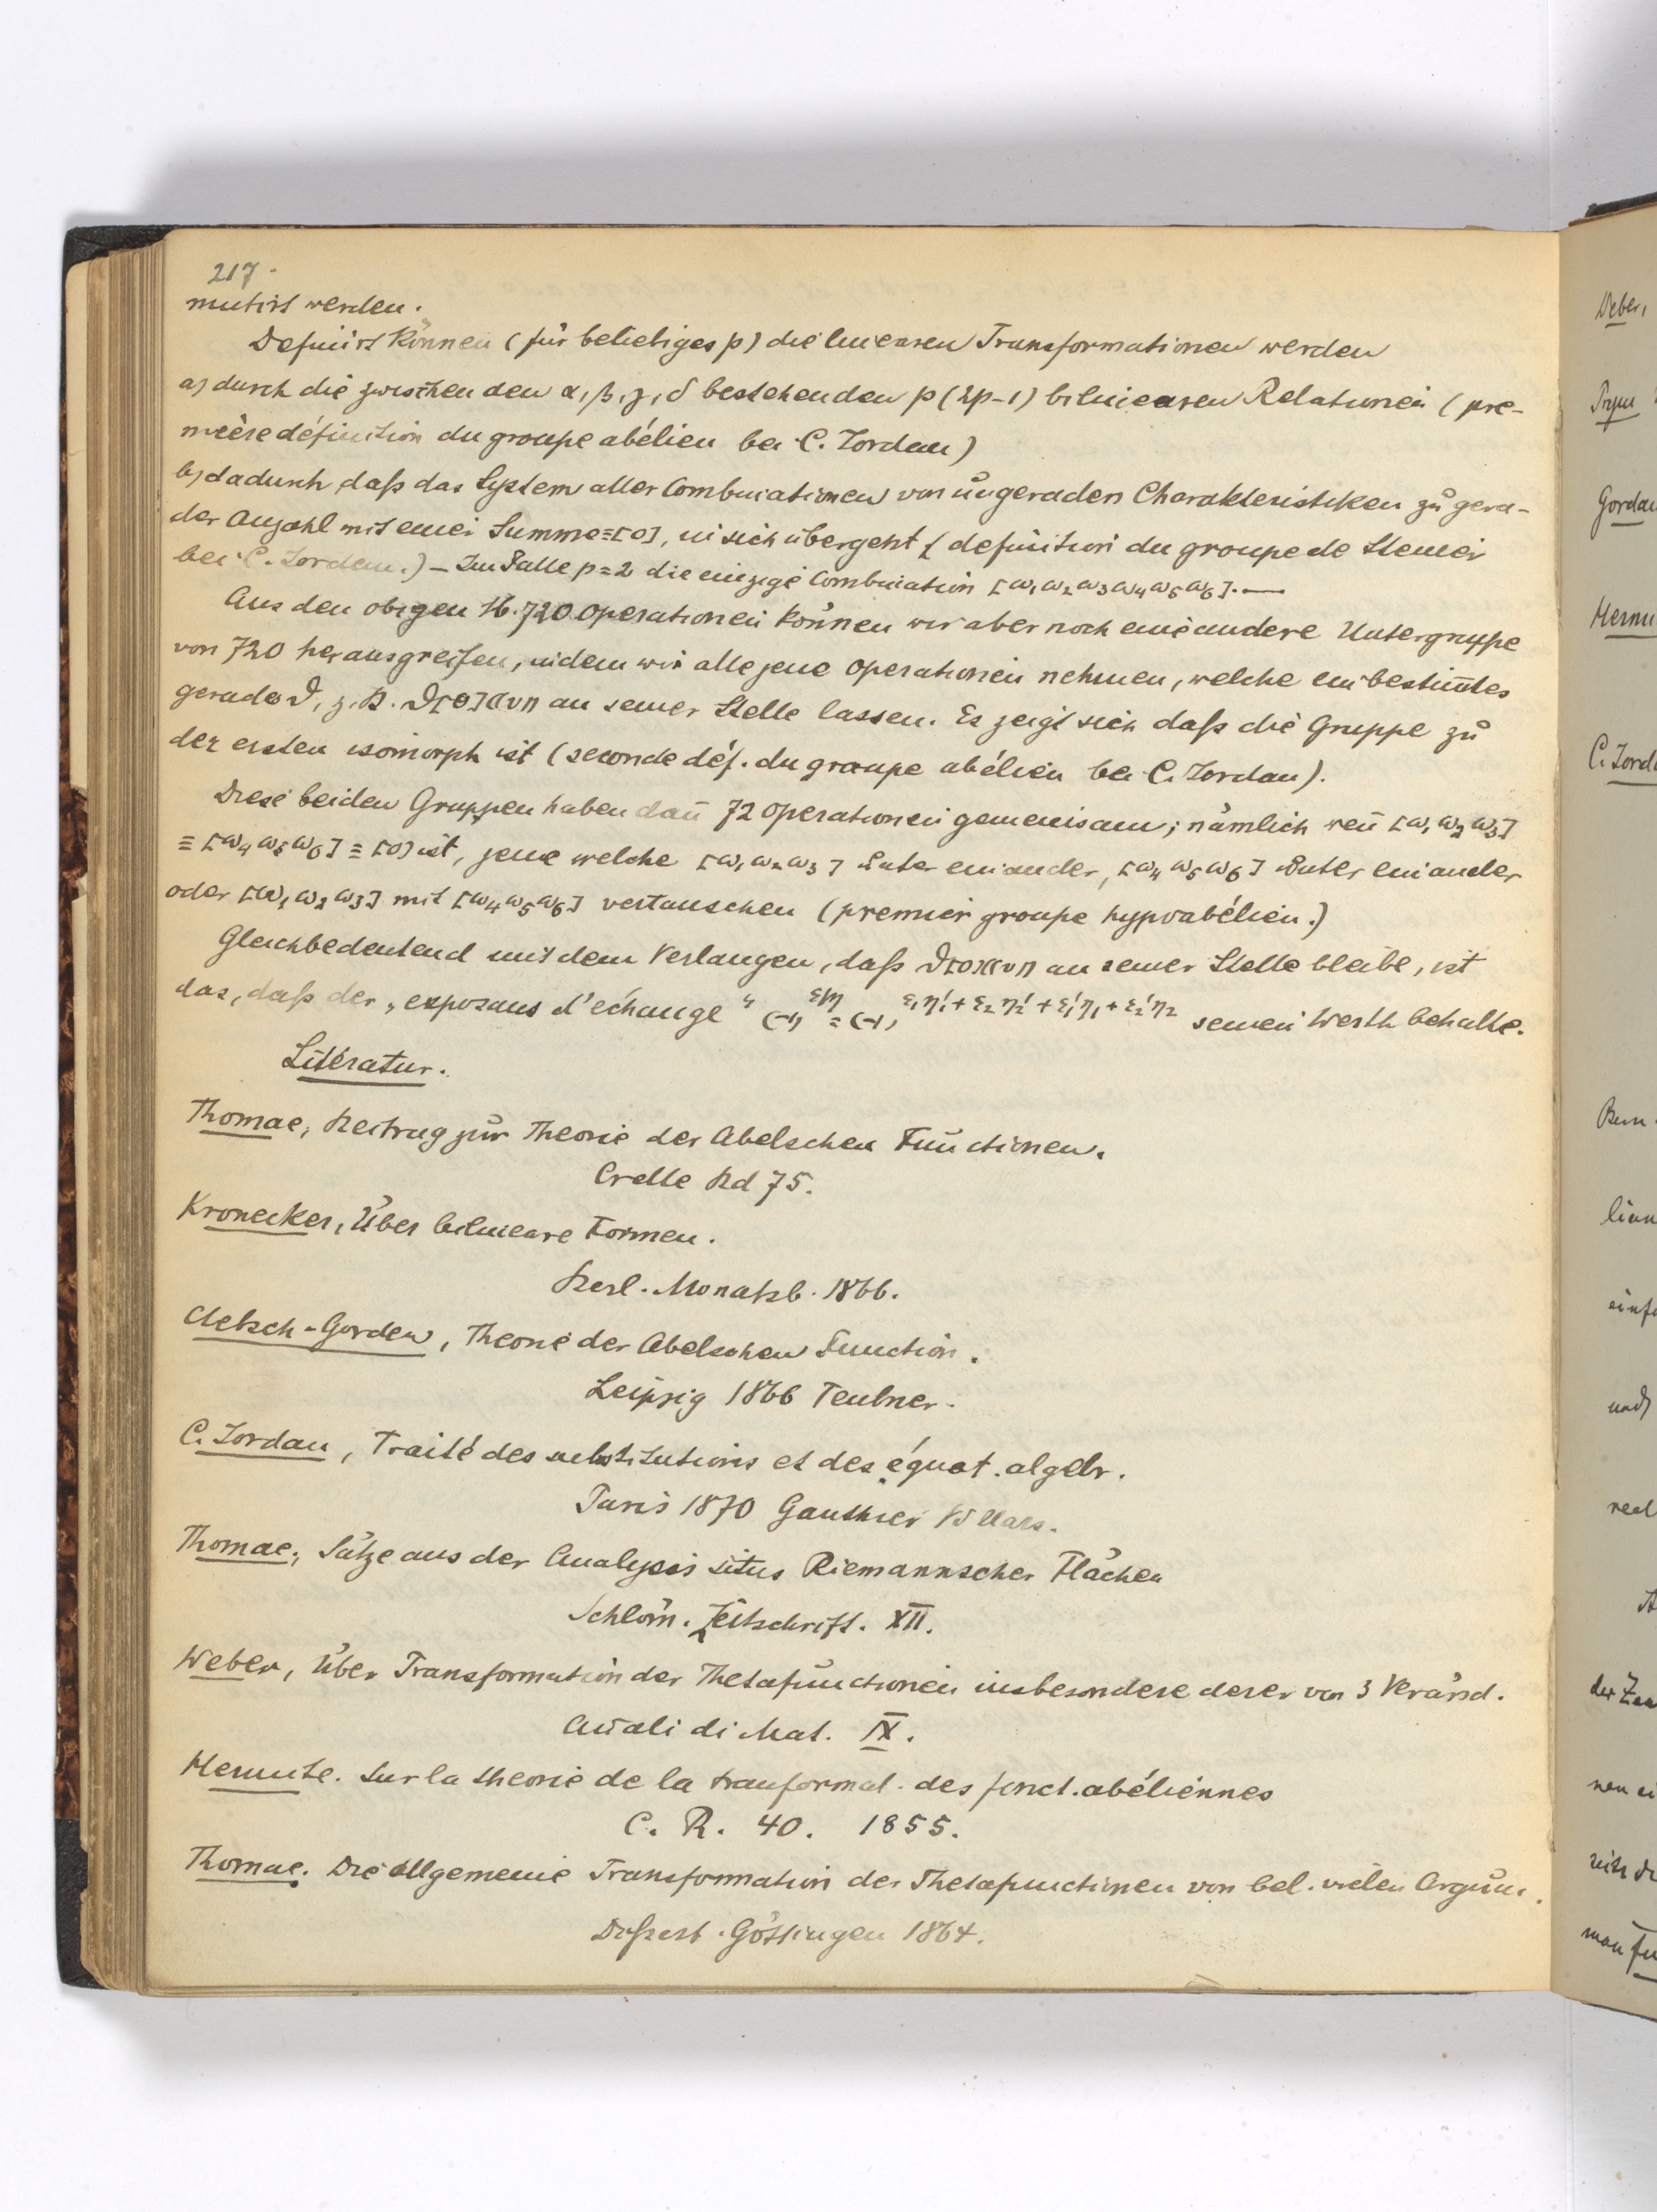 217.
mutirt werden.
Definirt können (für beliebiges p) die linearen Transformationen werden
a) durch die zwischen den α, β, γ, δ bestehenden p(2p-1) bilinearen Relationen (pre-
mière définition du groupe abélien bei C. Jordan)
b) dadurch daß das System aller Combinationen von ungeraden Charakteristiken zu gera-
der Anzahl mit einer Summe ≡ [0], in sich übergeht (definition du groupe de Steiner
bei C. Jordan.) – Im Falle p=2 die einzige Combination [ω₁ω₂ω₃ω₄ω₅ω₆]. —
Aus den obigen 16.720 Operationen können wir aber noch eine andere Untergruppe
von 720 herausgreifen, indem wir alle jene Operationen nehmen, welche ein bestim̄tes
gerades ϑ, z.B. ϑ[0]((v)) an seiner Stelle lassen. Es zeigt sich daß die Gruppe zu
der ersten isomorph ist (seconde déf. du groupe abélien bei C. Jordan).
Diese beiden Gruppen haben dan̄ 72 Operationen gemeinsam; nämlich wen̄ [ω₁ω₂ω₃]
≡ [ω₄ω₅ω₆] ≡ [0] ist, jene welche [ω₁ω₂ω₃] unter einander, [ω₄ω₅ω₆] unter einander
oder [ω₁ω₂ω₃] mit [ω₄ω₅ω₆] vertauschen (premier groupe hypoabélien.)
Gleichbedeutend mit dem Verlangen, daß ϑ[0]((v)) an seiner Stelle bleibe, ist
das, daß der „exposans d'échange" (-1)^{ε|η} = (-1)^{ε₁η₁' + ε₂η₂' + ε₁'η₁ + ε₂'η₂} seinen Werth behalte.
Literatur.
Thomae, Beitrag zur Theorie der Abelschen Functionen.
Crelle Bd 75.
Kronecker, Über bilineare Formen.
Berl. Monatsb. 1866.
Clebsch-Gordan, Theorie der Abelschen Function.
Leipzig 1866 Teubner.
C. Jordan, Traité des substitutions et des équat. algebr.
Paris 1870 Gauthier Villars.
Thomae, Sätze aus der Analysis situs Riemannscher Flächen
Schlöm. Zeitschrift. XII.
Weber, Über Transformation der Thetafunctionen insbesondere derer von 3 Veränd.
An̄ali di Mat. IX.
Hermite. Sur la theorie de la tranformat. des fonct. abélien̄es
C. R. 40. 1855.
Thomae. Die allgemeine Transformation der Thetafunctionen von bel. vielen Argum.
Dissert. Göttingen 1864.
Weber,
Prym
Gordan
C. Jord
einf
und